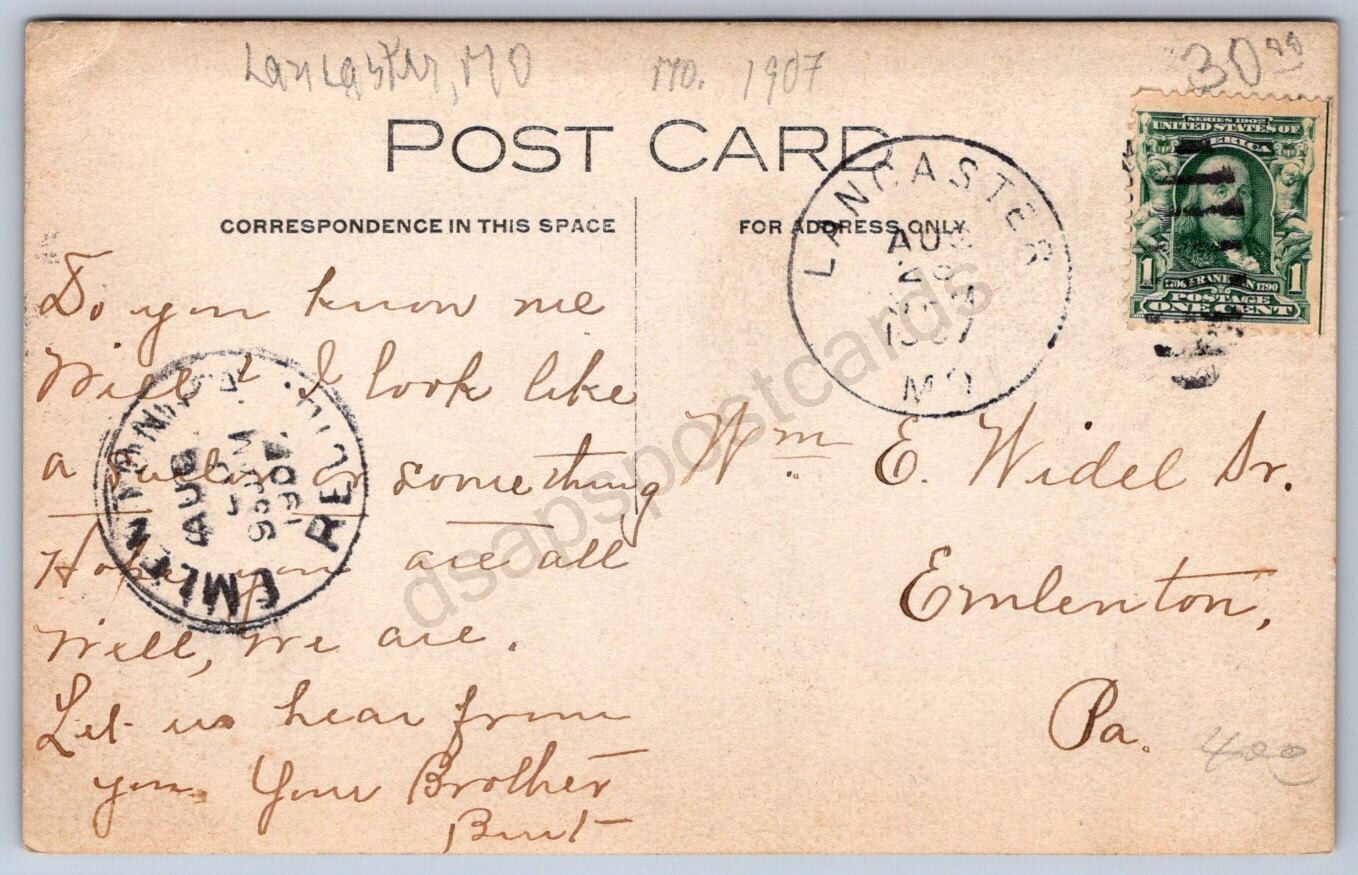 Lancaster, MO Mo. 1907 30⁰⁰
POST CARD
CORRESPONDENCE IN THIS SPACE
FOR ADDRESS ONLY
LANCASTER
AUG
1907
MO
SERIES 1902
UNITED STATES OF
AMERICA
1 1
1706 FRANKLIN 1790
POSTAGE
ONE CENT
Do you know me
Will? I look like
a sailor or something
Hope you are all
Well, We are.
Let us hear from
you. Your Brother
Burt
EMLENTON PA
AUG
930 AM
1907
REC'D.
Wm E. Widel Sr.
Emlenton,
Pa.
400
dsapspostcards